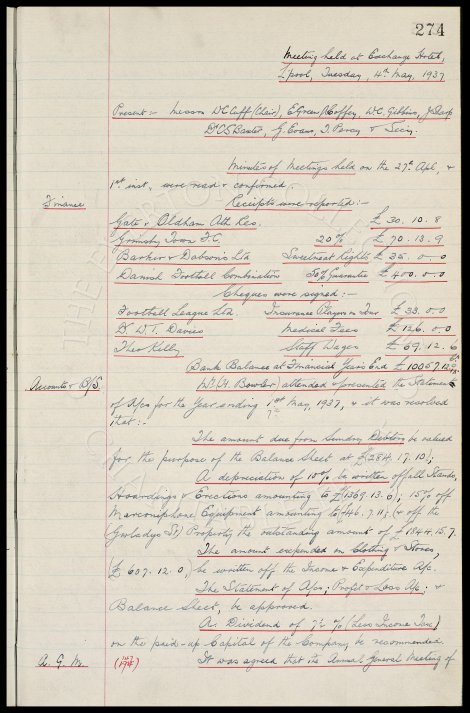 274
Meeting held at Exchange Hotel,
L'pool, Tuesday, 4th May, 1937
Present :- Messrs W.C. Cuff (Chair), E. Green, Coffey, W.C. Gibbins, J. Sharp
Dr C.S. Baxter, G. Evans, T. Percy & Secy.
Minutes of Meetings held on the 27th Apl, &
1st inst, were read & confirmed.
Finance
Receipts were reported :-
Gate v Oldham Ath Res. £ 30. 10. 8
Grimsby Town F.C. 20% £ 70. 13. 9
Barker & Dobsons Ltd Sweetmeat Rights £ 35. 0. 0
Danish Football Combination 50% Guarantee £ 400. 0. 0
Cheques were signed :-
Football League Ltd. Insurance Players on Tour £ 33. 0. 0
Dr W.T. Davies Medical Fees £ 126. 0. 0
Theo Kelly Staff Wages £ 69. 12. 6
Bank Balance at Financial Years End £ 10057. 12
Accounts & B/S.
Mr (A. Bowler) attended & presented the Statement
of A/cs for the Year ending 1st May, 1937, & it was resolved
that :-
The amount due from Sundry Debtors be valued
for the purpose of the Balance Sheet at £284. 17. 10;
A depreciation of 10% be written off all Stands,
Hoardings & Erections amounting to £1369. 13. 6; 15% off
Marconiphone Equipment amounting to £46. 7. 11; & off the
(Gwladys St) Property the outstanding amount of £1844. 15. 7.
The amount expended on Clothing & Stores,
(£ 607. 12. 0,) be written off the Income & Expenditure A/c.
The Statement of A/cs; Profit & Loss A/c; &
Balance Sheet, be approved.
A. Dividend of 7½ % (Less Income Tax)
on the paid-up Capital of the Company, be recommended.
A. G. M.
It was agreed that the Annual General Meeting of